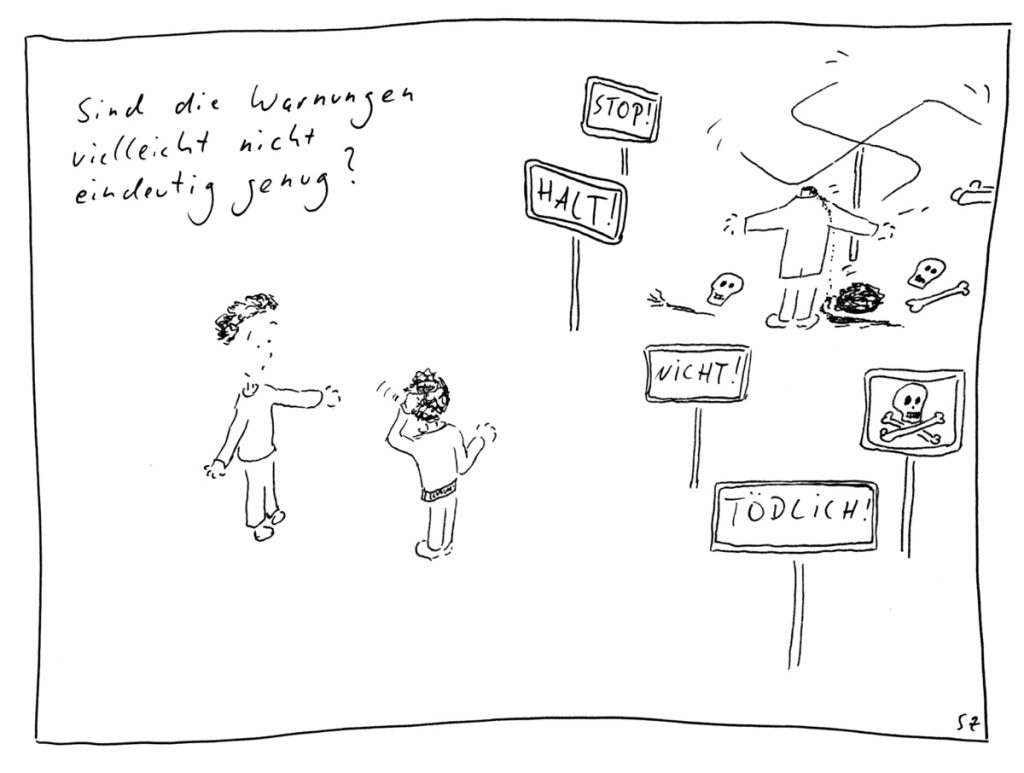 Sind die Warnungen
vielleicht nicht
eindeutig genug?
STOP!
HALT!
NICHT!
TÖDLICH!
SZ